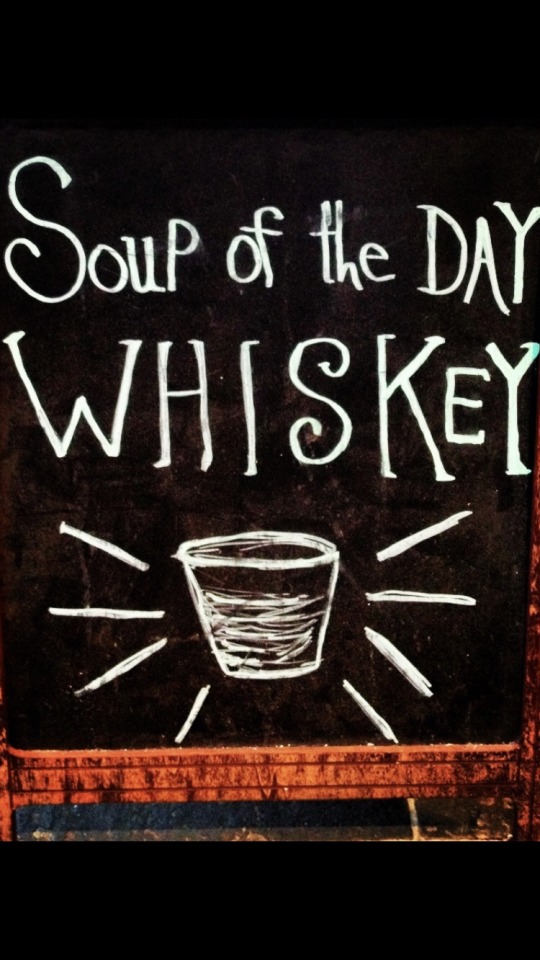 Soup of the DAY
WHISKEY